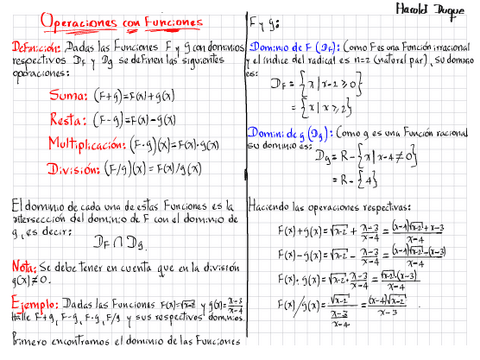 Harold Duque
Operaciones con Funciones
Definición: Dadas las Funciones F y g con dominios
respectivos D_F y D_g se definen las siguientes
operaciones:
Suma: (F+g)=F(x)+g(x)
Resta: (F-g)=F(x)-g(x)
Multiplicación: (F·g)(x)=F(x)·g(x)
División: (F/g)(x)=F(x)/g(x)
El dominio de cada una de estas Funciones es la
intersección del dominio de F con el dominio de
g, es decir:
D_F ∩ D_g.
Nota: Se debe tener en cuenta que en la división
g(x)≠0.
Ejemplo: Dadas las Funciones F(x)=√x-2 y g(x)=x-3/x-4
Halle F+g, F-g, F·g, F/g y sus respectivos dominios.
Primero encontramos el dominio de las Funciones
F y g:
Dominio de F (D_F): Como F es una Función irracional
y el índice del radical es n=2 (natural par), su dominio
es:
D_F={x|x-2≥0}
={x|x≥2}
Dominio de g (D_g): Como g es una Función racional
su dominio es:
D_g=R-{x|x-4≠0}
=R-{4}
Haciendo las operaciones respectivas:
F(x)+g(x)=√x-2+x-3/x-4=(x-4)√x-2+x-3/x-4
F(x)-g(x)=√x-2-x-3/x-4=(x-4)√x-2-(x-3)/x-4
F(x)·g(x)=√x-2·x-3/x-4=√x-2(x-3)/x-4
F(x)/g(x)=√x-2/x-3/x-4=(x-4)√x-2/x-3